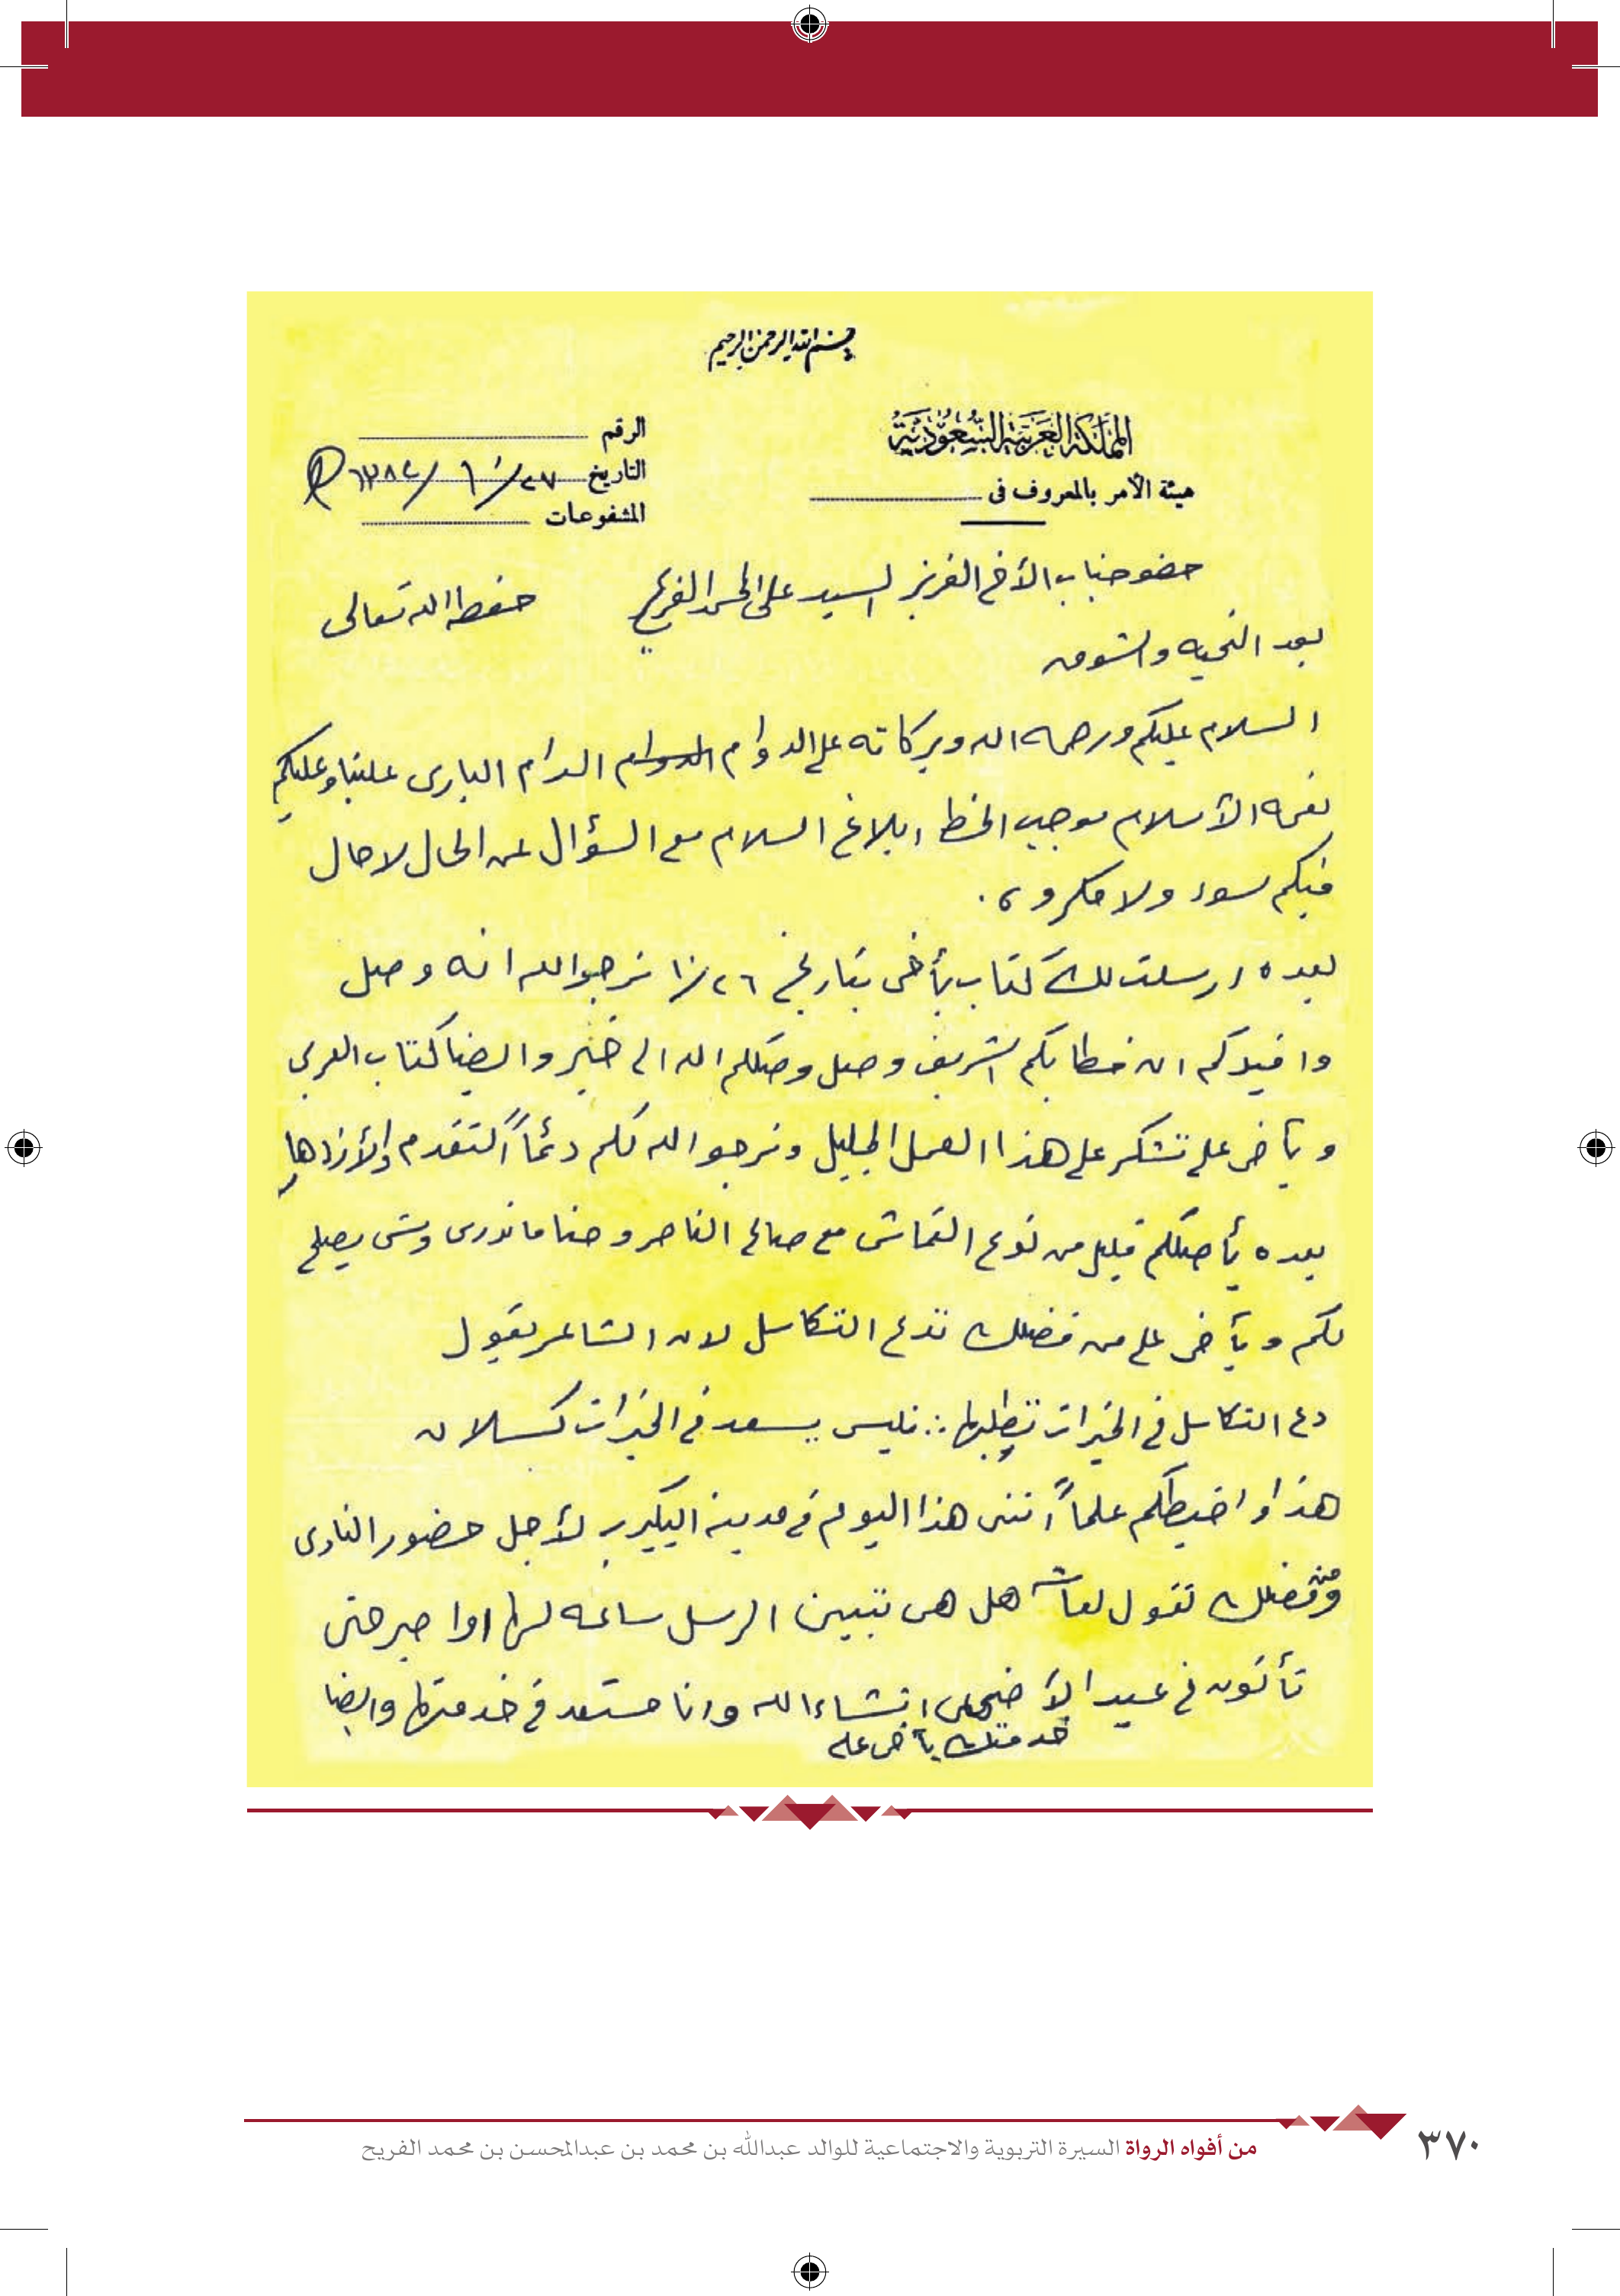 بسم الله الرحمن الرحيم
المملكة العربية السعودية
هيئة الأمر بالمعروف فى
الرقم
التاريخ ٢٧/١٠/١٣٨٢هـ
المشفوعات
حضو جناب الأخ العزيز السيد على المحسن الفريح حفظه الله تعالى
بعد التحيه والشوق
السلام عليكم ورحمه الله وبركاته على الدوام الدام البارى علينا وعليكم
نعمه الأسلام موجب الخط ابلاغ السلام مع السؤال عن الحال لا حال
فيكم سوء ولا مكروه .
بعده ارسلت لك كتاب يأخى بتاريخ ٢٦/١٠ نرجو الله انه وصل
وافيدكم ان خطابكم الشريف وصل وصلكم الله الى خير وايضا كتاب العربى
ويأخى على نشكر على هذا العمل الجليل ونرجو الله لكم دئماً التقدم والأزدهار
بعده يأصلكم قليل من نوع القماش مع صالح الناصر وحنا ماندرى وش يصلح
لكم ويأخى على من فضلك تدع التكاسل لان الشاعر يقول
دع التكاسل فى الخيرات تطلبها ∴ فليس يسعد فى الخيرات كسلان
هذا واحيطكم علماً اننى هذا اليوم فى مدينة البكيريه لأجل حضور النادى
ومن فضلك تقول هل هى تبين ارسل ساعه لها اوا صبر حتى
تأتون فى عيد الأضحى انشاء الله وانا مستعد فى خدمتها وايضا
خدمتك يأخى على
من أفواه الرواة السيرة التربوية والاجتماعية للوالد عبدالله بن محمد بن عبدالمحسن بن محمد الفريح
٣٧٠